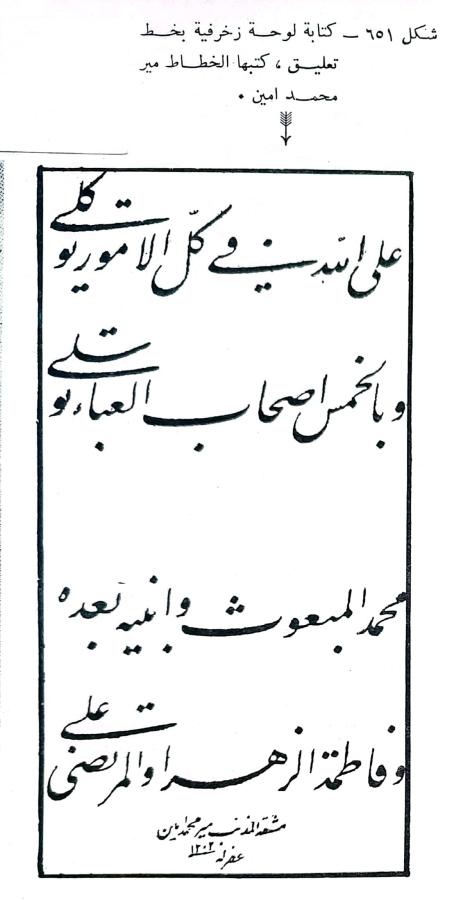 شكل ٦٥١ ــ كتابة لوحة زخرفية بخط
تعليق ، كتبها الخطاط مير
محمد امين ٠
على الله في كلّ الامور توكلي
وبالخمس اصحاب العباء توسلي
محمد المبعوث وابنيه بعده
وفاطمة الزهرا والمرتضى علي
مشقه المذنب مير محمد امين
غفرله ١٢٠٢